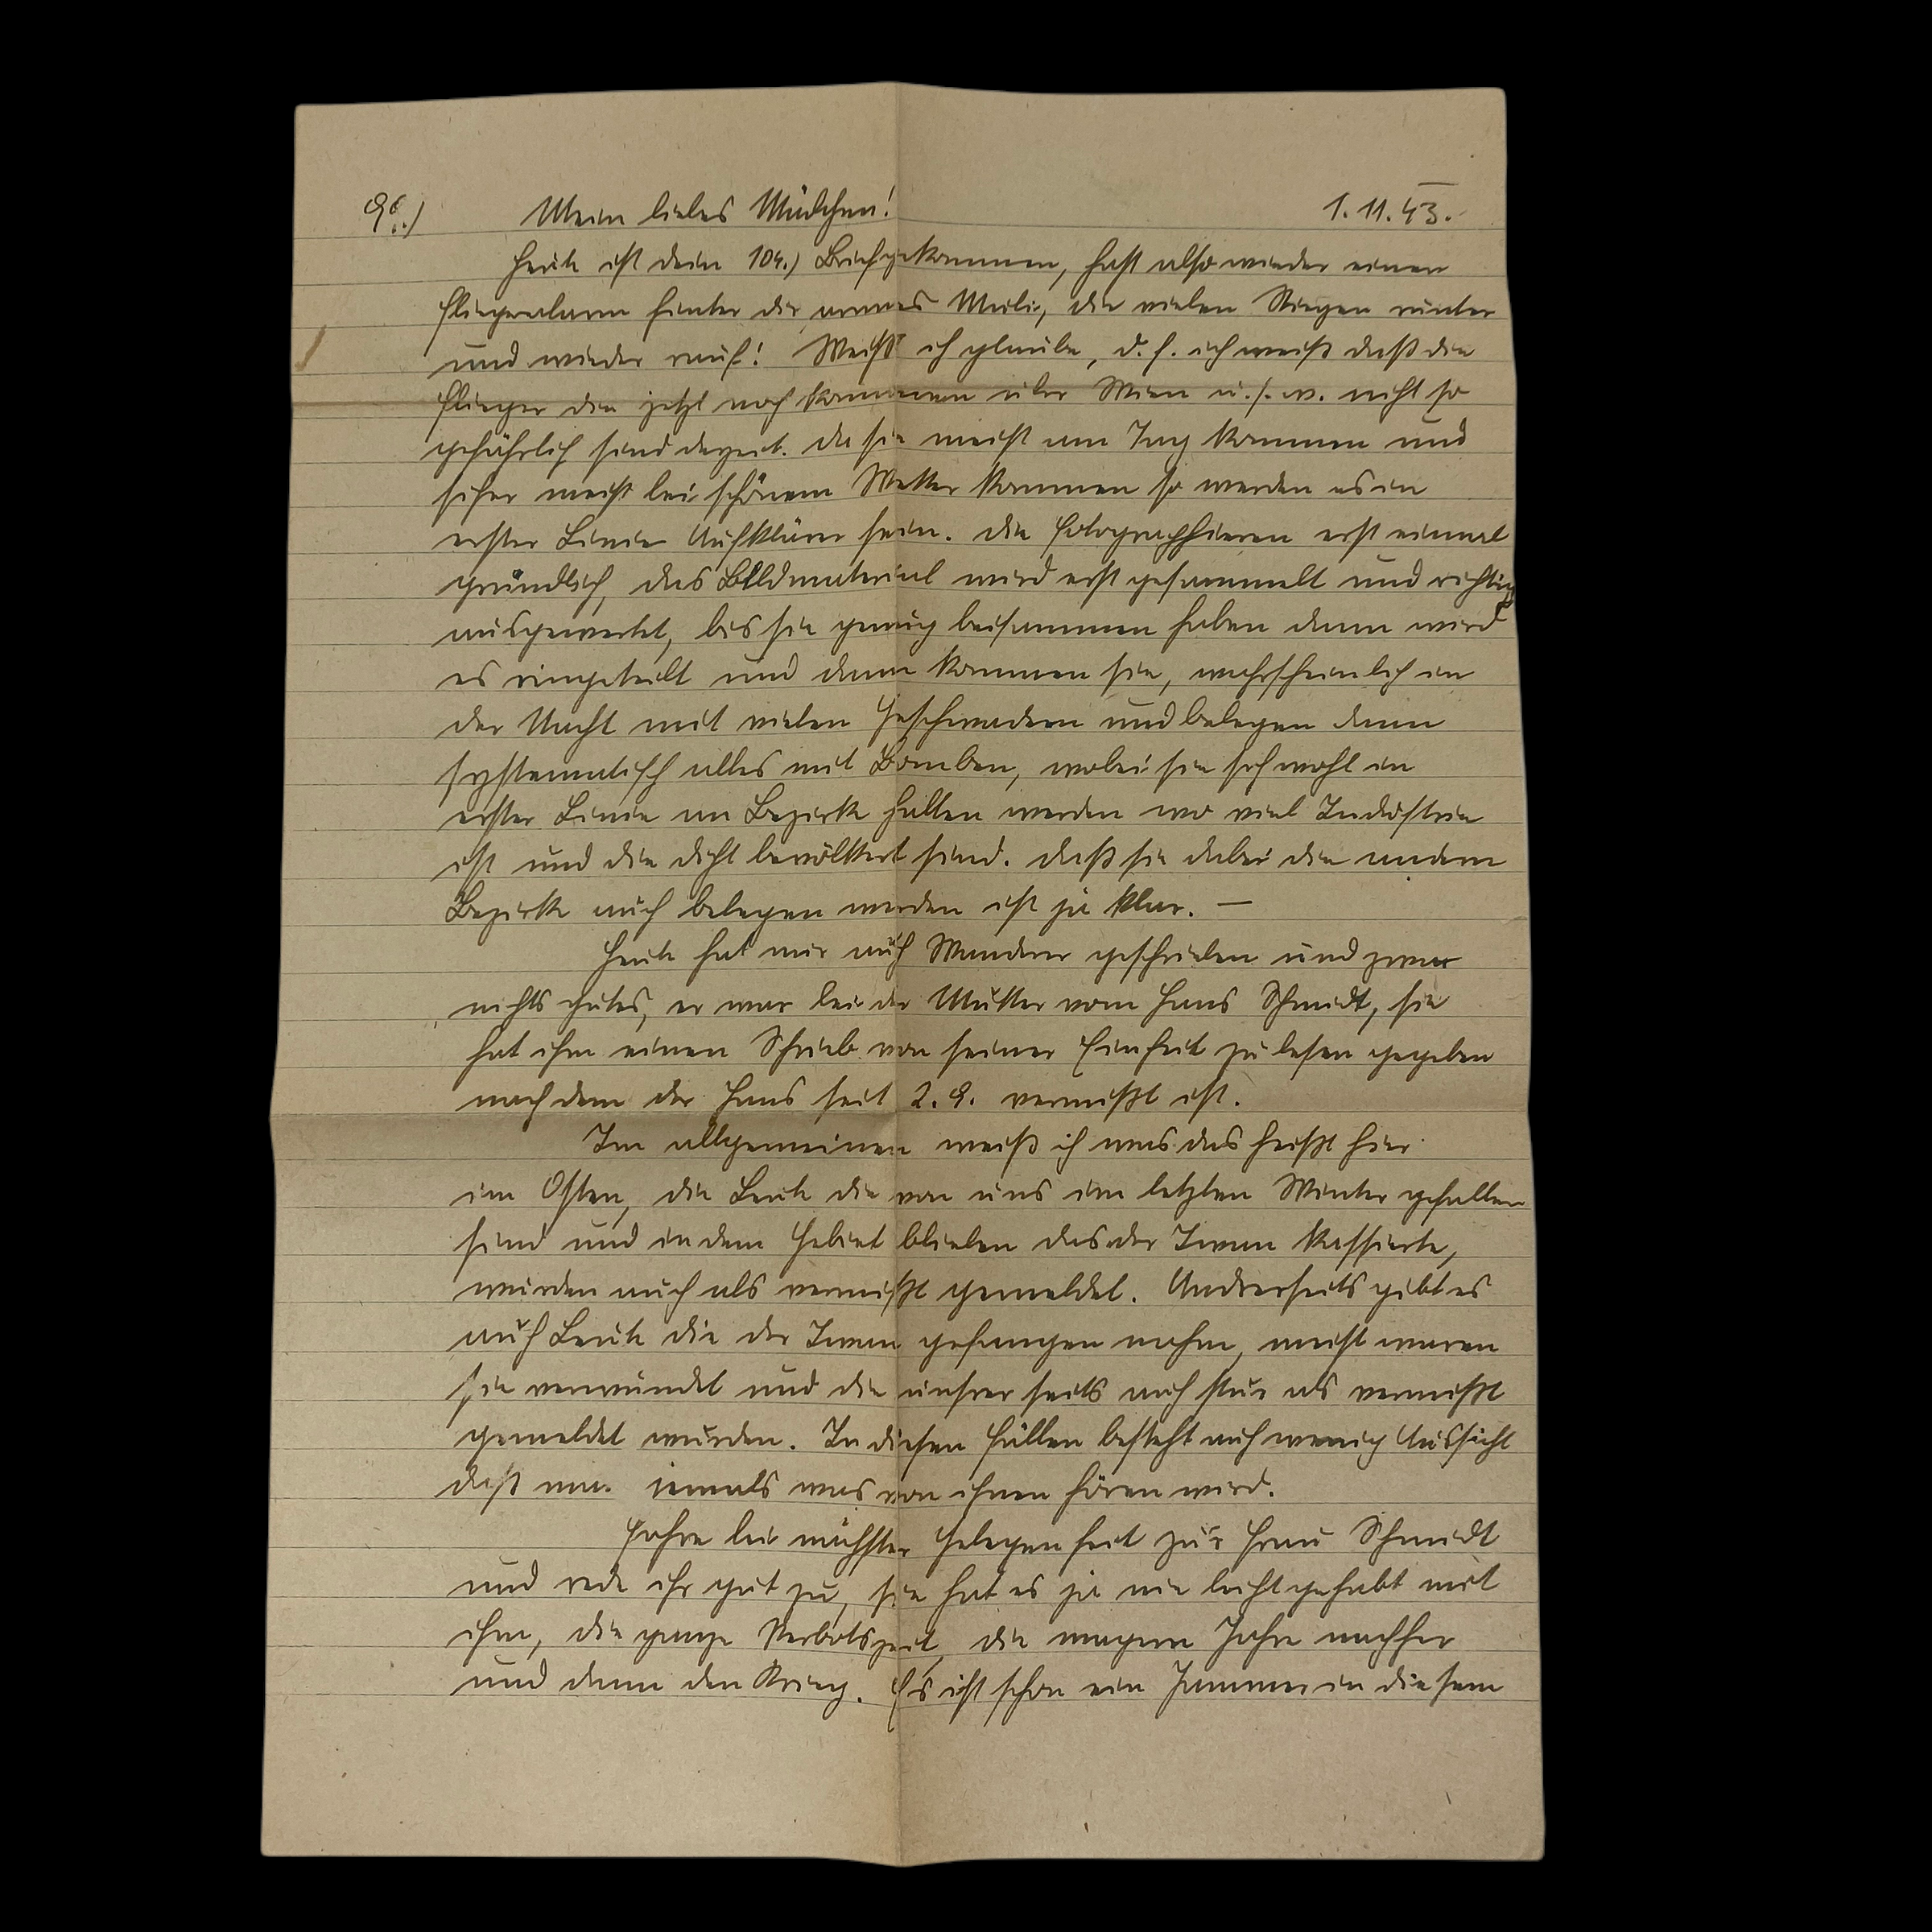 96.) Mein liebes Mädchen! 1.11.43.
Heute ist dein 104.) Brief gekommen, hast also wieder einen
Fliegeralarm hinter dir armes Murli, die vielen Stiegen runter
und wieder rauf! Weißt ich glaube, d.h. ich weiß daß die
Flieger die jetzt noch kommen über Wien u.s.w. nicht so
gefährlich sind derzeit. Da sie meist am Tag kommen und
sicher meist bei schönem Wetter kommen so werden es in
erster Linie Aufklärer sein. Die fotographieren erst einmal
gründlich, das Bildmaterial wird erst gesammelt und richtig
ausgewertet, bis sie genug beisammen haben dann wird
es eingeteilt und dann kommen sie, wahrscheinlich in
der Nacht mit vielen Geschwadern und belegen dann
systematisch alles mit Bomben, wobei sie sich wohl in
erster Linie an Bezirke halten werden wo viel Industrie
ist und die dicht bevölkert sind. Daß sie dabei die andern
Bezirke auch belegen werden ist ja klar. —
Heute hat mir auch Wanderer geschrieben und zwar
nichts gutes, er war bei der Mutter vom Hans Schmidt, sie
hat ihm einen Schrieb von seiner Einheit zu lesen gegeben
nach dem der Hans seit 2.9. vermißt ist.
Im allgemeinen weiß ich was das heißt hier
im Osten, die Leute die von uns im letzten Winter gefallen
sind und in dem Gebiet blieben das der Iwan kassierte,
wurden auch als vermißt gemeldet. Andrerseits gibt es
auch Leute die der Iwan gefangen nahm, meist waren
sie verwundet und die unsrerseits auch stur als vermißt
gemeldet wurden. In diesen Fällen besteht auch wenig Aussicht
daß man jemals was von ihnen hören wird.
Fahre bei nächster Gelegenheit zur Frau Schmidt
und rede ihr gut zu, sie hat es ja nie leicht gehabt mit
ihm, die ganze Verbotszeit, die magern Jahre nachher
und dann den Krieg. Es ist schon ein Jammer in diesem